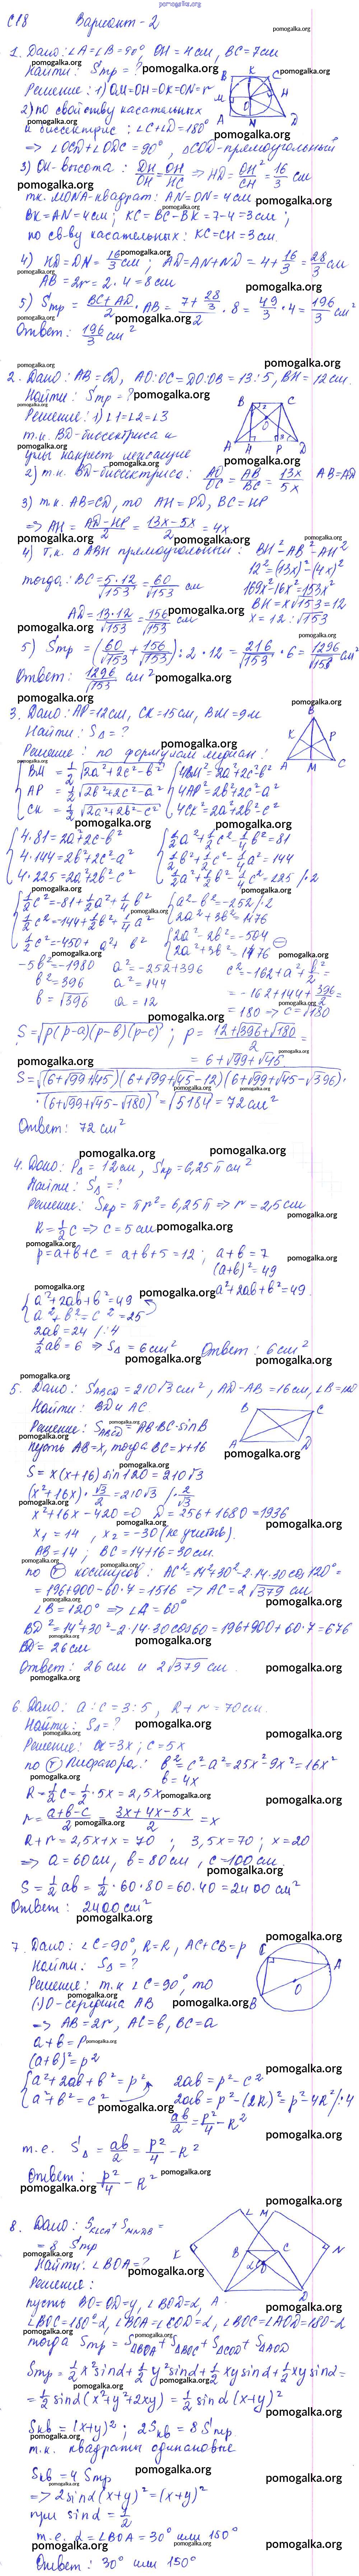 pomogalka.org
C18 Вариант - 2
1. Дано: ∠A=∠B=90° OH=4см, BC=7см
Найти: Sтр=?
Решение: 1) OM=OH=OK=ON=r
2) по свойству касательных
и биссектрис: ∠C+∠D=180°
⇒ ∠OCD+∠ODC=90°, △COD-прямоугольный
3) OH-высота: DH/OH=OH/HC ⇒ HD=OH²/CH=16/3 см
тк. MONA-квадрат: AN=ON=4см
BK=AN=4см; KC=BC-BK=7-4=3см;
по св-ву касательных: KC=CH=3см.
4) HD=DN=16/3 см; AD=AN+ND=4+16/3=28/3 см
AB=2r=2·4=8см
5) Sтр=(BC+AD)/2·AB=(7+28/3)/2·8=49/3·4=196/3 см²
Ответ: 196/3 см²
2. Дано: AB=CD, AO:OC=DO:OB=13:5, BH=12см.
Найти: Sтр=?
Решение: 1) ∠1=∠2=∠3
т.к. BD-биссектриса и
углы накрест лежащие
2) т.к. BD-биссектриса: AO/OC=AB/BC=13x/5x AB=AD
3) т.к. AB=CD, то AH=PD, BC=HP
⇒ AH=(AD-HP)/2=(13x-5x)/2=4x
4) Т.к. △ABH прямоугольный: BH²=AB²-AH²
12²=(13x)²-(4x)²
тогда: BC=5·12/√153=60/√153 см
169x²-16x²=153x²
BH=x√153=12
AD=13·12/√153=156/√153 см
x=12:√153
5) Sтр=(60/√153+156/√153):2·12=216/√153·6=1296/√153 см²
Ответ: 1296/√153 см²
3. Дано: AP=12см, CK=15см, BM=9м
Найти: S△=?
Решение: по формулам медиан:
{BM=1/2√2a²+2c²-b² {4BM²=2a²+2c²-b²
AP=1/2√2b²+2c²-a² 4AP²=2b²+2c²-a²
CK=1/2√2a²+2b²-c² 4CK²=2a²+2b²-c²
{4·81=2a²+2c²-b² {1/2a²+1/2c²-1/4b²=81
4·144=2b²+2c²-a² 1/2b²+1/2c²-1/4a²=144
4·225=2a²+2b²-c² 1/2a²+1/2b²-1/4c²=225 /·2
{1/2c²=81+1/2a²+1/4b² {a²-b²=-252/·2
1/2c²=-144+1/2b²+1/4a² 2a²+3b²=1476
1/2c²=-450+a²+b² {2a²-2b²=-504
2a²+3b²=1476
-5b²=-1980 a²=-252+396 c²=-162+a²+b²/2=
b²=396 a²=144 =-162+144+396/2=
b=√396 a=12 =180 ⇒ c=√180
S=√p(p-a)(p-b)(p-c); p=(12+√396+√180)/2=
=6+√99+√45
S=√(6+√99+√45)(6+√99+√45-12)(6+√99+√45-√396)·
·(6+√99+√45-√180)=√5184=72см²
Ответ: 72 см²
4. Дано: P△=12см, Sкр=6,25π см²
Найти: S△=?
Решение: Sкр=πr²=6,25π ⇒ r=2,5см
R=1/2c ⇒ c=5см
p=a+b+c=a+b+5=12; a+b=7
(a+b)²=49
a²+2ab+b²=49
{a²+2ab+b²=49
a²+b²=c²=25
2ab=24 /:4
1/2ab=6 ⇒ S△=6см² Ответ: 6см²
5. Дано: SABCD=210√3см², AD-AB=16см, ∠B=120
Найти: BD и AC.
Решение: SABCD=AB·BC·sinB
пусть AB=x, тогда BC=x+16
S=x(x+16)sin120=210√3
(x²+16x)·√3/2=210√3 /·2/√3
x²+16x-420=0 D=256+1680=1936
x₁=14, x₂=-30 (не учитыв).
AB=14; BC=14+16=30см
по Т косинусов: AC²=14²+30²-2·14·30cos120°=
=196+900-60·7=1516 ⇒ AC=2√379 см
∠B=120° ⇒ ∠A=60°
BD²=14²+30²-2·14·30cos60=196+900+60·7=676
BD=26см
Ответ: 26 см и 2√379 см.
6. Дано: a:c=3:5, R+r=70см.
Найти: S△=?
Решение: a=3x; c=5x
по Т Пифагора: b²=c²-a²=25x²-9x²=16x²
b=4x
R=1/2c=1/2·5x=2,5x
r=(a+b-c)/2=(3x+4x-5x)/2=x
R+r=2,5x+x=70; 3,5x=70; x=20
⇒ a=60см, b=80см, c=100см
S=1/2ab=1/2·60·80=60·40=2400см²
Ответ: 2400см²
7. Дано: ∠C=90°, R=R, AC+CB=p
Найти: S△=?
Решение: т.к ∠C=90°, то
(·)O-середина AB
⇒ AB=2r, AC=b, BC=a
a+b=P
(a+b)²=p²
{a²+2ab+b²=p² 2ab=p²-c²
a²+b²=c² 2ab=p²-(2R)²=p²-4R²/:4
ab/2=p²/4-R²
т.е. S△=ab/2=p²/4-R²
Ответ: p²/4-R²
8. Дано: SKLCA+SMNDB=
=8 Sтр
Найти: ∠BOA=?
Решение:
пусть BO=OD=y, ∠BOD=α,
∠BOC=180°-α, ∠BOA=∠COD=α, ∠BOC=∠AOD=180-α
тогда Sтр=S△BOA+S△BOC+S△COD+S△AOD
Sтр=1/2x²sinα+1/2y²sinα+1/2xysinα+1/2xysinα=
=1/2sinα(x²+y²+2xy)=1/2sinα(x+y)²
Sкв=(x+y)²; 2Sкв=8Sтр
т.к. квадраты одинаковые
Sкв=4Sтр
⇒ 2sinα(x+y)²=(x+y)²
при sinα=1/2
т.е. α=∠BOA=30° или 150°
Ответ: 30° или 150°